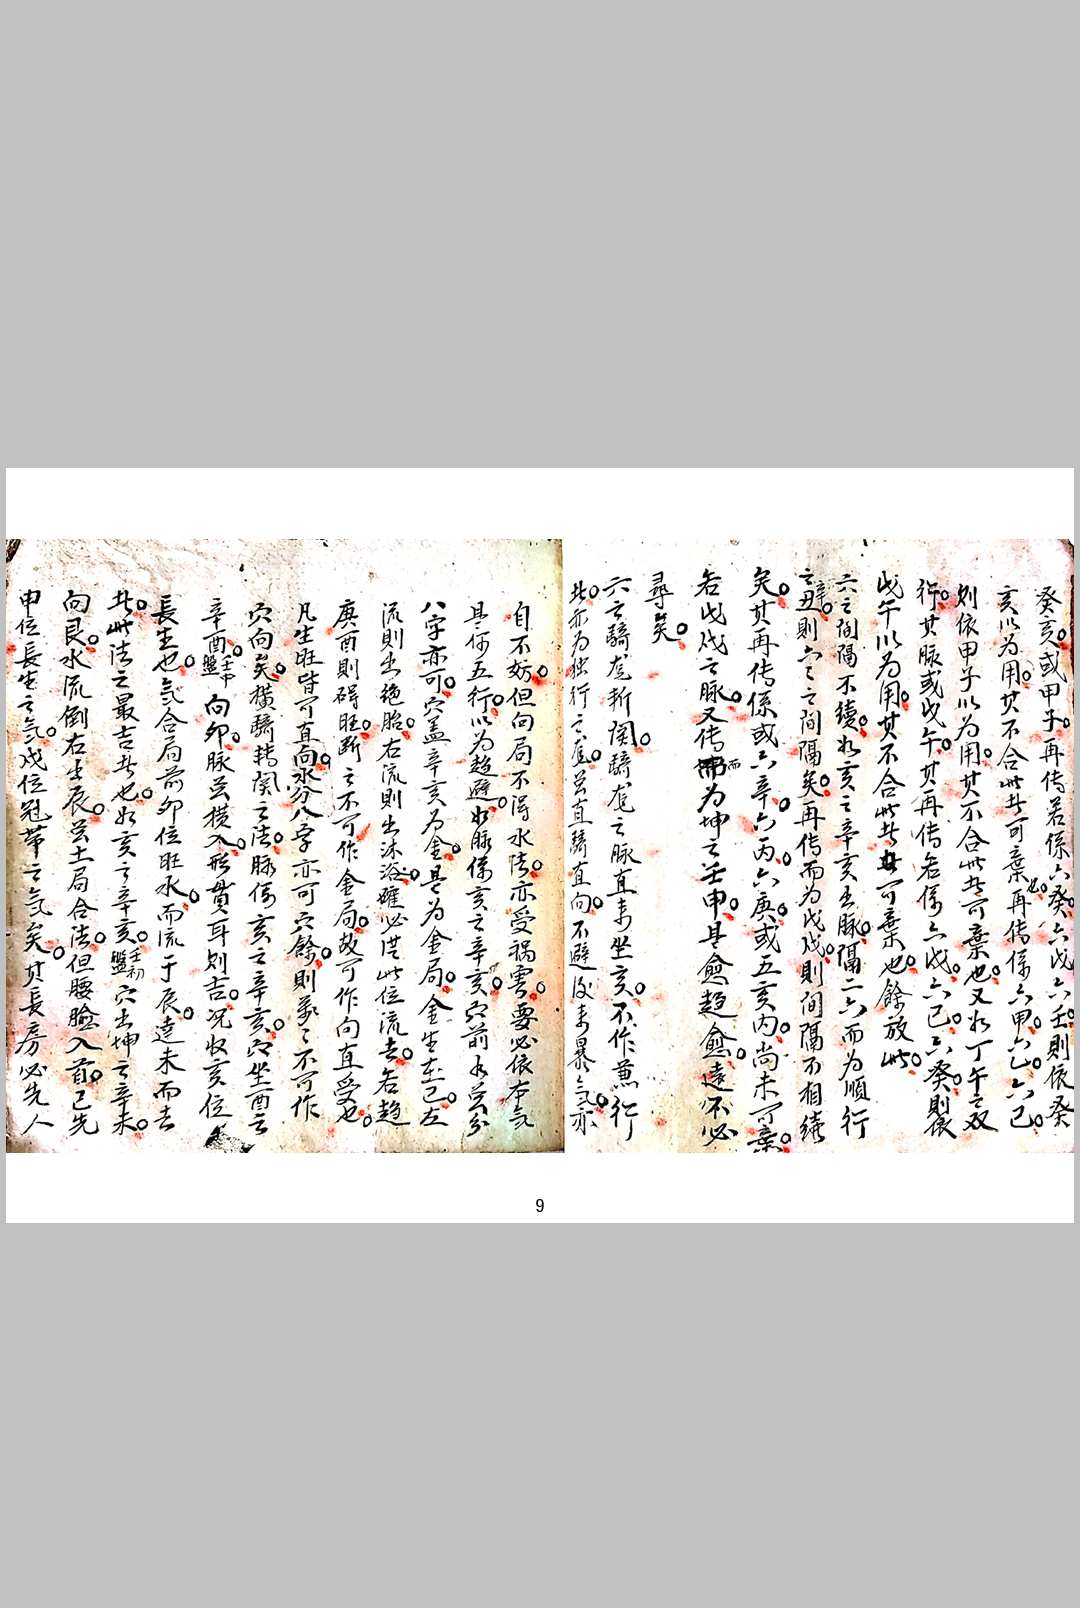 癸亥或甲子再传若係六癸六戊六壬則依癸
亥以為用其不合此者可棄也再传係六甲六乙六己
則依甲子以為用其不合此者可棄也又如丁午之双
行其脉或戊午其再传若係六戊六己六癸則依
戊午以為用其不合此者可棄也餘放此
六之間隔不續如亥之辛亥出脉隔二六而為順行
之辛丑則六之間隔矣再传而為戊戌則間隔不相續
矣其再传係或六辛六丙六庚或五亥內尚未可棄
若戊戌之脉又传而為坤之壬申是愈趨愈遠不必
尋矣
六言騎龙斬関騎龙之脉直来坐亥不作兼行
此亦為独行之龙若直騎直向不避後来暴气亦
自不妨但向局不得水法亦受禍害要必依本气
是何五行以為趨避如脉係亥之辛亥穴前水若分
八字亦可穴盖辛亥為金是為金局金生在巳左
流則出絶胎右流則出沐浴確必從此位流去若趨
庚酉則碍旺断之不可作金局故可作向直受也
凡生旺皆可直向水分八字亦可穴餘則萬不可作
穴向矣橫騎转関之法脉係亥之辛亥穴坐酉之
辛酉壬中盤向卯脉若橫入形貫耳則吉况收亥位
長生也气合局前卯位旺水而流于辰達未而去
者此法之最吉者也如亥之辛亥壬初盤穴出坤之辛未
向艮水流倒右出辰若土局合法但腰臉入首已先
申位長生之气戌位冠帶之气矣其長房必先人